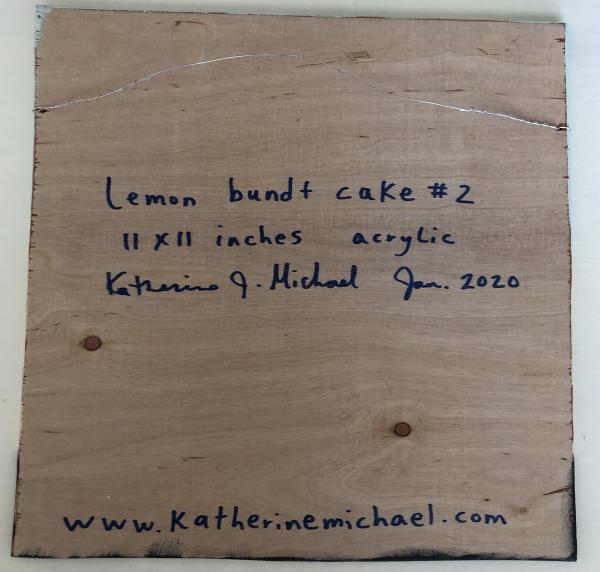 Lemon bundt cake #2
11 x 11 inches acrylic
Katherine J. Michael Jan. 2020
www.katherinemichael.com